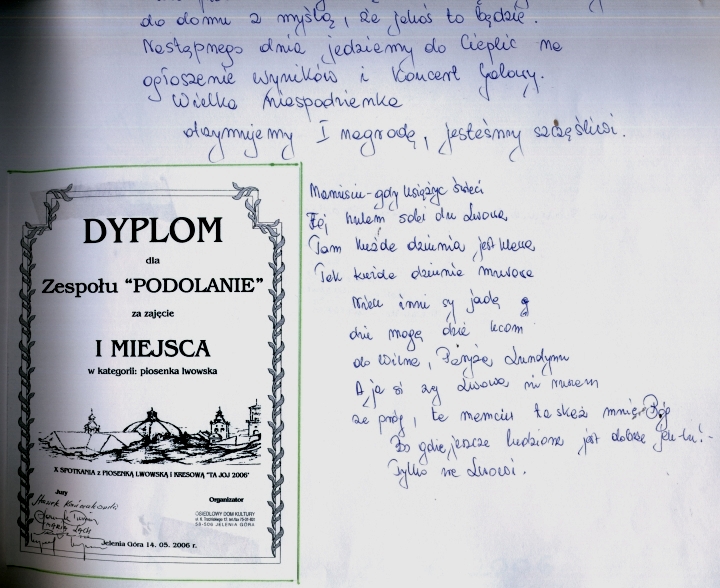 do domu z myślą, że jakoś to będzie.
Następnego dnia jedziemy do Cieplic na
ogłoszenie wyników i Koncert Galowy.
Wielka niespodzianka
otrzymujemy I nagrodę, jesteśmy szczęśliwi.
DYPLOM
dla
Zespołu "PODOLANIE"
za zajęcie
I MIEJSCA
w kategorii: piosenka lwowska
X SPOTKANIA z PIOSENKĄ LWOWSKĄ I KRESOWĄ "TA JOJ 2006"
Jury
Organizator
OSIEDLOWY DOM KULTURY
58-506 JELENIA GÓRA
Jelenia Góra 14. 05. 2006 r.
Mamisiu - gdy księżyc świeci
Hulem sobi du Lwowa
Tam każde jest
Tak każde
inni sy jadą
dzie mogą dzie kcom
do Wilna, Paryża Lundynu
A ja si zy Lwowa ni ruszem
że ta skaż mnie Bóg
Bo gdzie jeszcze ludziom jest dobrze jak tu! -
Tylko we Lwowi.